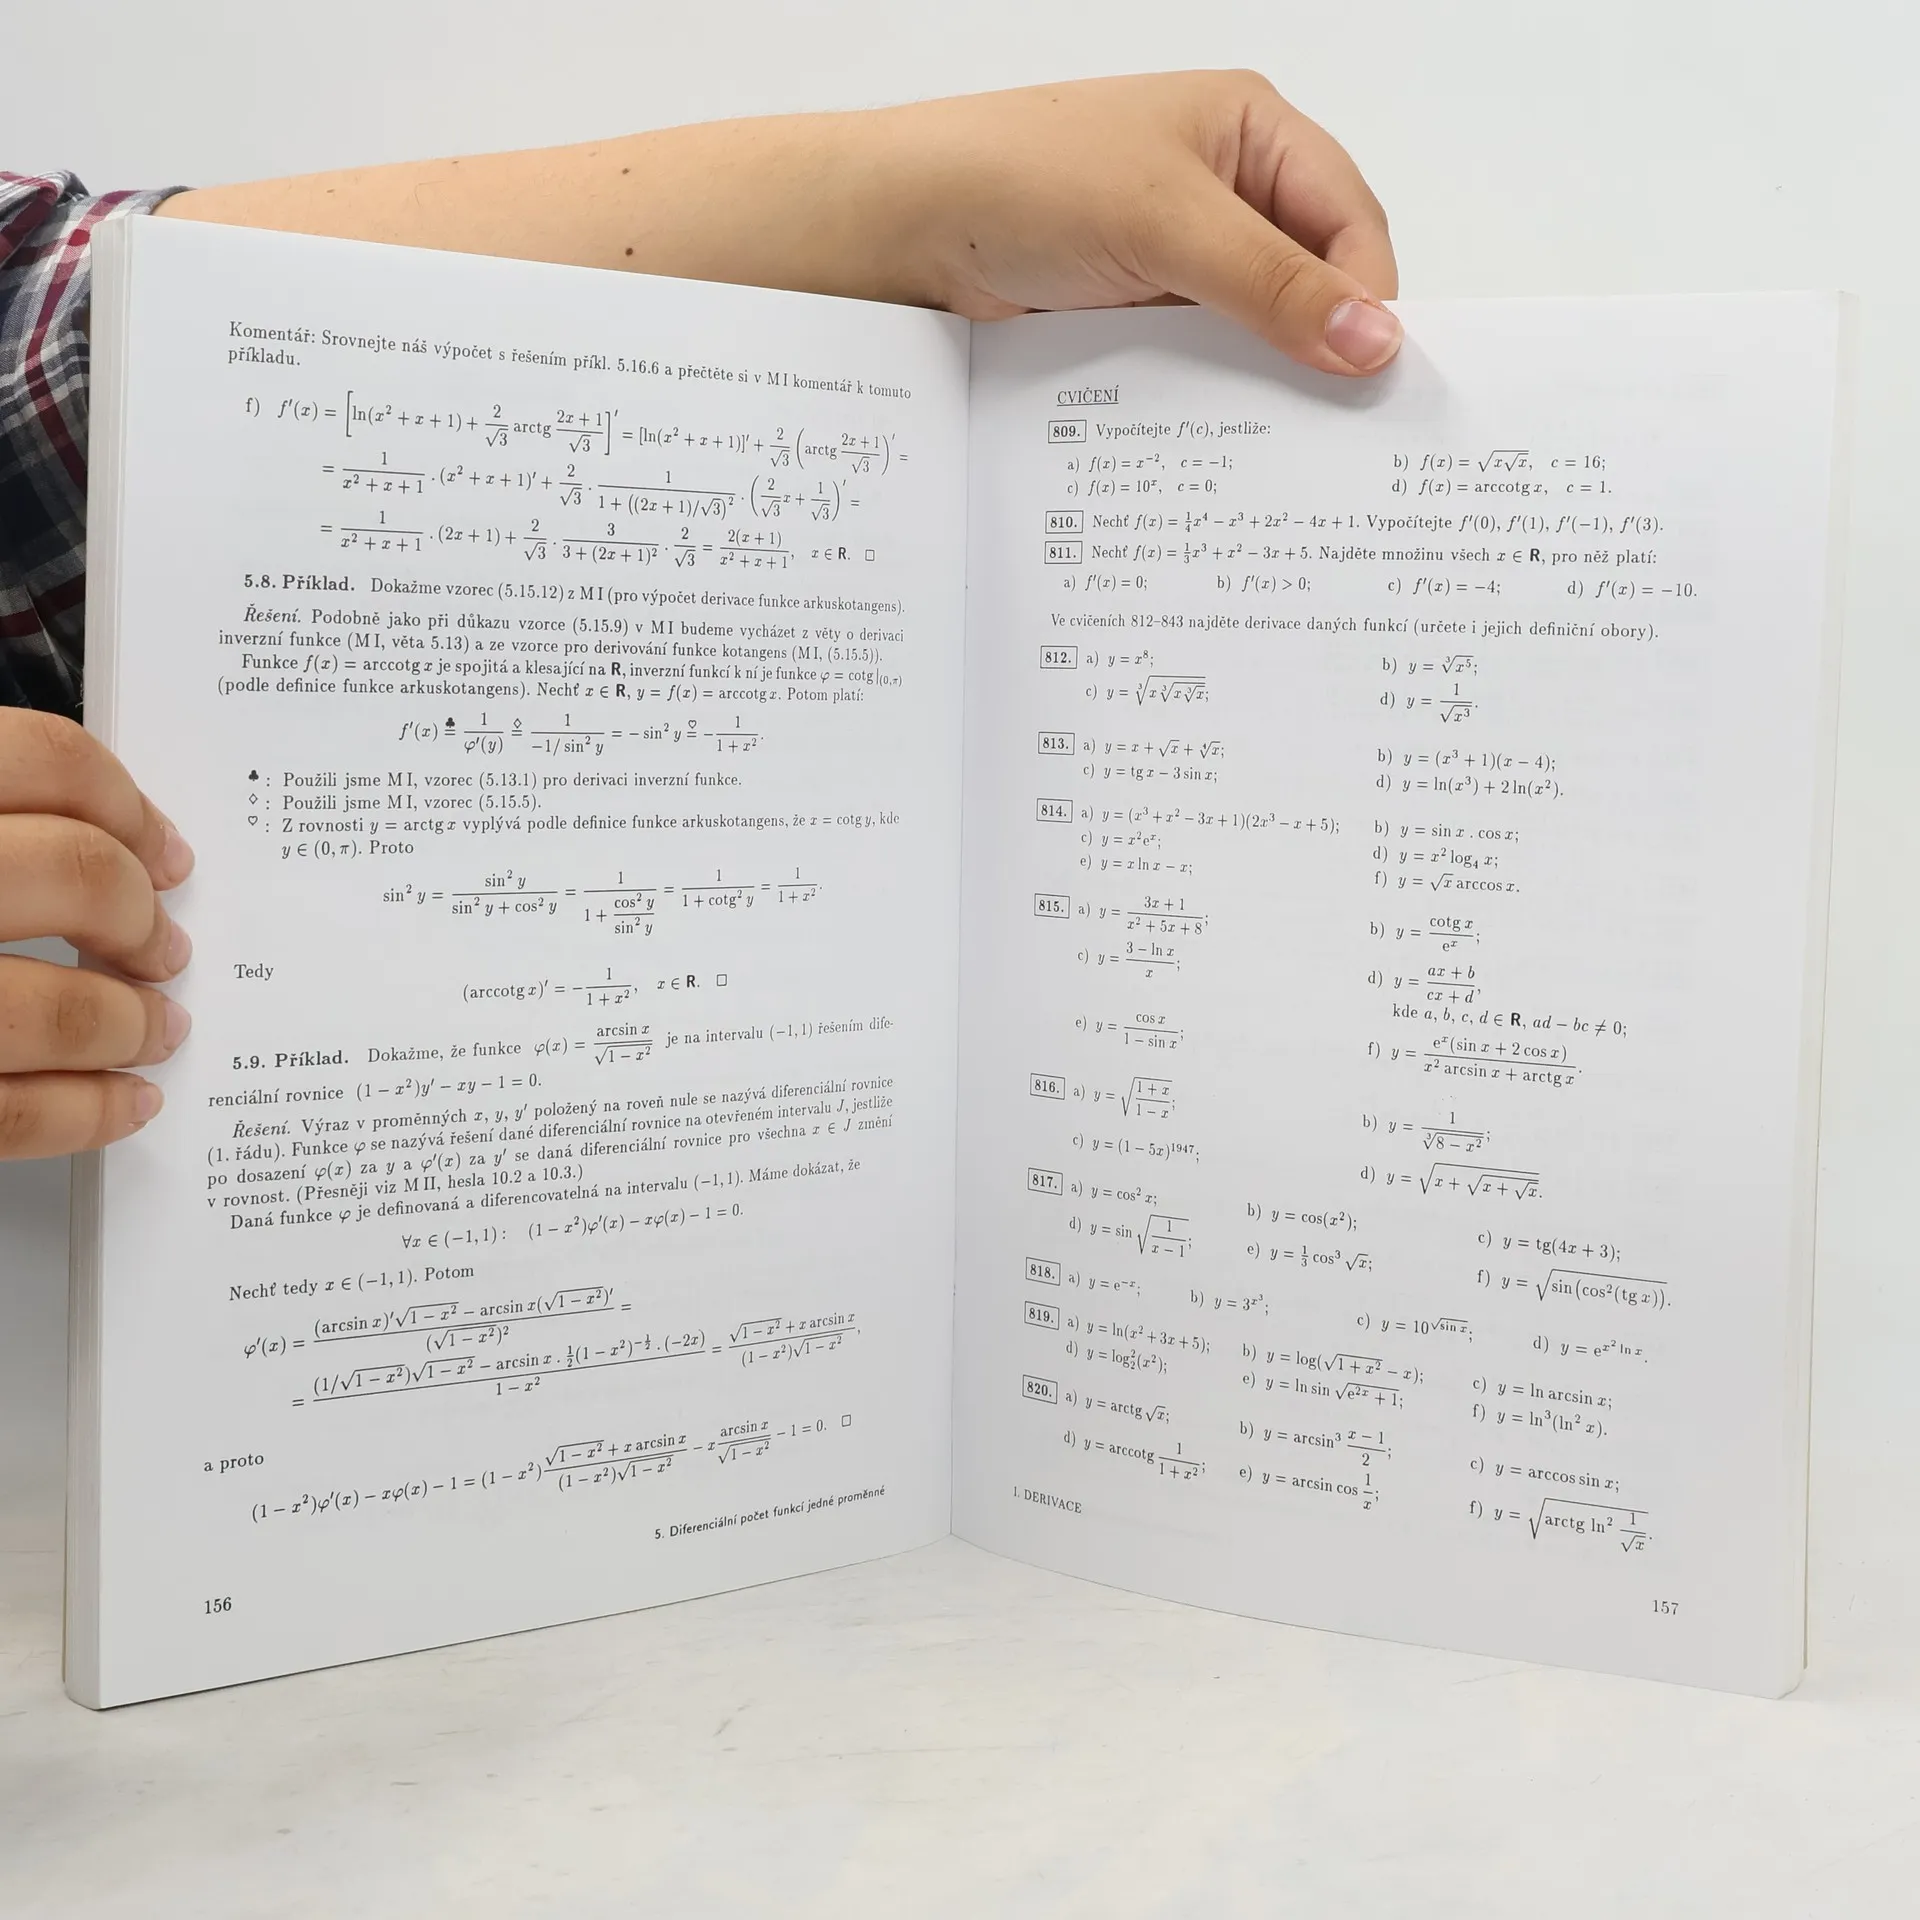 Komentář: Srovnejte náš výpočet s řešením příkl. 5.16.6 a přečtěte si v M I komentář k tomuto
příkladu.
f) f′(x) = [ln(x² + x + 1) + 2/√3 arctg (2x + 1)/√3]′ = [ln(x² + x + 1)]′ + 2/√3 (arctg (2x + 1)/√3)′ =
= 1/(x² + x + 1) · (x² + x + 1)′ + 2/√3 · 1/(1 + ((2x + 1)/√3)²) · (2/√3 x + 1/√3)′ =
= 1/(x² + x + 1) · (2x + 1) + 2/√3 · 3/(3 + (2x + 1)²) · 2/√3 = 2(x + 1)/(x² + x + 1), x ∈ R. □
5.8. Příklad. Dokažme vzorec (5.15.12) z M I (pro výpočet derivace funkce arkuskotangens).
Řešení. Podobně jako při důkazu vzorce (5.15.9) v M I budeme vycházet z věty o derivaci
inverzní funkce (M I, věta 5.13) a ze vzorce pro derivování funkce kotangens (M I, (5.15.5)).
Funkce f(x) = arccotg x je spojitá a klesající na R, inverzní funkcí k ní je funkce φ = cotg|(0,π)
(podle definice funkce arkuskotangens). Nechť x ∈ R, y = f(x) = arccotg x. Potom platí:
f′(x) ♣= 1/φ′(y) ◇= 1/(−1/sin² y) = − sin² y ♡= − 1/(1 + x²).
♣: Použili jsme M I, vzorec (5.13.1) pro derivaci inverzní funkce.
◇: Použili jsme M I, vzorec (5.15.5).
♡: Z rovnosti y = arctg x vyplývá podle definice funkce arkuskotangens, že x = cotg y, kde
y ∈ (0, π). Proto
sin² y = sin² y/(sin² y + cos² y) = 1/(1 + cos² y/sin² y) = 1/(1 + cotg² y) = 1/(1 + x²).
Tedy
(arccotg x)′ = − 1/(1 + x²), x ∈ R. □
5.9. Příklad. Dokažme, že funkce φ(x) = arcsin x/√(1 − x²) je na intervalu (−1, 1) řešením dife-
renciální rovnice (1 − x²)y′ − xy − 1 = 0.
Řešení. Výraz v proměnných x, y, y′ položený na roveň nule se nazývá diferenciální rovnice
(1. řádu). Funkce φ se nazývá řešení dané diferenciální rovnice na otevřeném intervalu J, jestliže
po dosazení φ(x) za y a φ′(x) za y′ se daná diferenciální rovnice pro všechna x ∈ J změní
v rovnost. (Přesněji viz M II, hesla 10.2 a 10.3.)
Daná funkce φ je definovaná a diferencovatelná na intervalu (−1, 1). Máme dokázat, že
∀x ∈ (−1, 1): (1 − x²)φ′(x) − xφ(x) − 1 = 0.
Nechť tedy x ∈ (−1, 1). Potom
φ′(x) = ((arcsin x)′√(1 − x²) − arcsin x(√(1 − x²))′)/(√(1 − x²))² =
= ((1/√(1 − x²))√(1 − x²) − arcsin x . ½(1 − x²)^(−½) . (−2x))/(1 − x²) = (√(1 − x²) + x arcsin x)/((1 − x²)√(1 − x²)),
a proto
(1 − x²)φ′(x) − xφ(x) − 1 = (1 − x²) (√(1 − x²) + x arcsin x)/((1 − x²)√(1 − x²)) − x arcsin x/√(1 − x²) − 1 = 0. □
5. Diferenciální počet funkcí jedné proměnné
156
CVIČENÍ
809. Vypočítejte f′(c), jestliže:
a) f(x) = x⁻², c = −1; b) f(x) = √(x√x), c = 16;
c) f(x) = 10ˣ, c = 0; d) f(x) = arccotg x, c = 1.
810. Nechť f(x) = ¼x⁴ − x³ + 2x² − 4x + 1. Vypočítejte f′(0), f′(1), f′(−1), f′(3).
811. Nechť f(x) = ⅓x³ + x² − 3x + 5. Najděte množinu všech x ∈ R, pro něž platí:
a) f′(x) = 0; b) f′(x) > 0; c) f′(x) = −4; d) f′(x) = −10.
Ve cvičeních 812–843 najděte derivace daných funkcí (určete i jejich definiční obory).
812. a) y = x⁸; b) y = ∛(x⁵);
c) y = ∛(x∛(x∛x)); d) y = 1/√(x³).
813. a) y = x + √x + ∜x; b) y = (x³ + 1)(x − 4);
c) y = tg x − 3 sin x; d) y = ln(x³) + 2 ln(x²).
814. a) y = (x³ + x² − 3x + 1)(2x³ − x + 5); b) y = sin x . cos x;
c) y = x²eˣ; d) y = x² log₄ x;
e) y = x ln x − x; f) y = √x arccos x.
815. a) y = (3x + 1)/(x² + 5x + 8); b) y = cotg x/eˣ;
c) y = (3 − ln x)/x; d) y = (ax + b)/(cx + d),
kde a, b, c, d ∈ R, ad − bc ≠ 0;
e) y = cos x/(1 − sin x); f) y = eˣ(sin x + 2 cos x)/(x² arcsin x + arctg x).
816. a) y = √((1 + x)/(1 − x)); b) y = 1/∛(8 − x²);
c) y = (1 − 5x)¹⁹⁴⁷; d) y = √(x + √(x + √x)).
817. a) y = cos² x; b) y = cos(x²); c) y = tg(4x + 3);
d) y = sin √(1/(x − 1)); e) y = ⅓ cos³ √x; f) y = √(sin(cos²(tg x))).
818. a) y = e⁻ˣ; b) y = 3^(x³); c) y = 10^(√(sin x)); d) y = e^(x² ln x).
819. a) y = ln(x² + 3x + 5); b) y = log(√(1 + x²) − x); c) y = ln arcsin x;
d) y = log₂²(x²); e) y = ln sin √(e²ˣ + 1); f) y = ln³(ln² x).
820. a) y = arctg √x; b) y = arcsin³ (x − 1)/2; c) y = arccos sin x;
d) y = arccotg 1/(1 + x²); e) y = arcsin cos 1/x; f) y = √(arctg ln² 1/√x).
1. DERIVACE
157